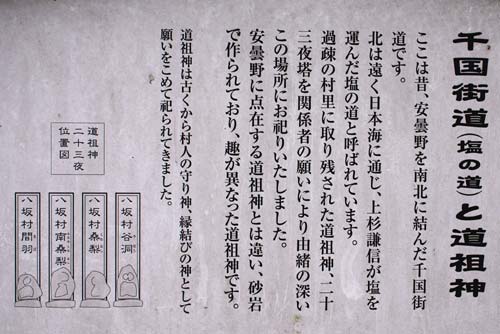 千国街道(塩の道)と道祖神
ここは昔、安曇野を南北に結んだ千国街
道です。
北は遠く日本海に通じ、上杉謙信が塩を
運んだ塩の道と呼ばれています。
過疎の村里に取り残された道祖神、二十
三夜塔を関係者の願いにより由緒の深い
この場所にお祀りいたしました。
安曇野に点在する道祖神とは違い、砂岩
で作られており、趣が異なった道祖神です。
道祖神は古くから村人の守り神、縁結びの神として
願いをこめて祀られてきました。
道祖神
二十三夜
位置図
八坂村谷洞
八坂村桑梨
八坂村南桑梨
八坂村間羽